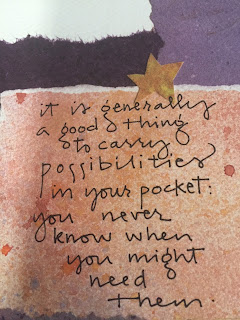 it is generally
a good thing
to carry
possibilities
in your pocket:
you never
know when
you might
need
them.